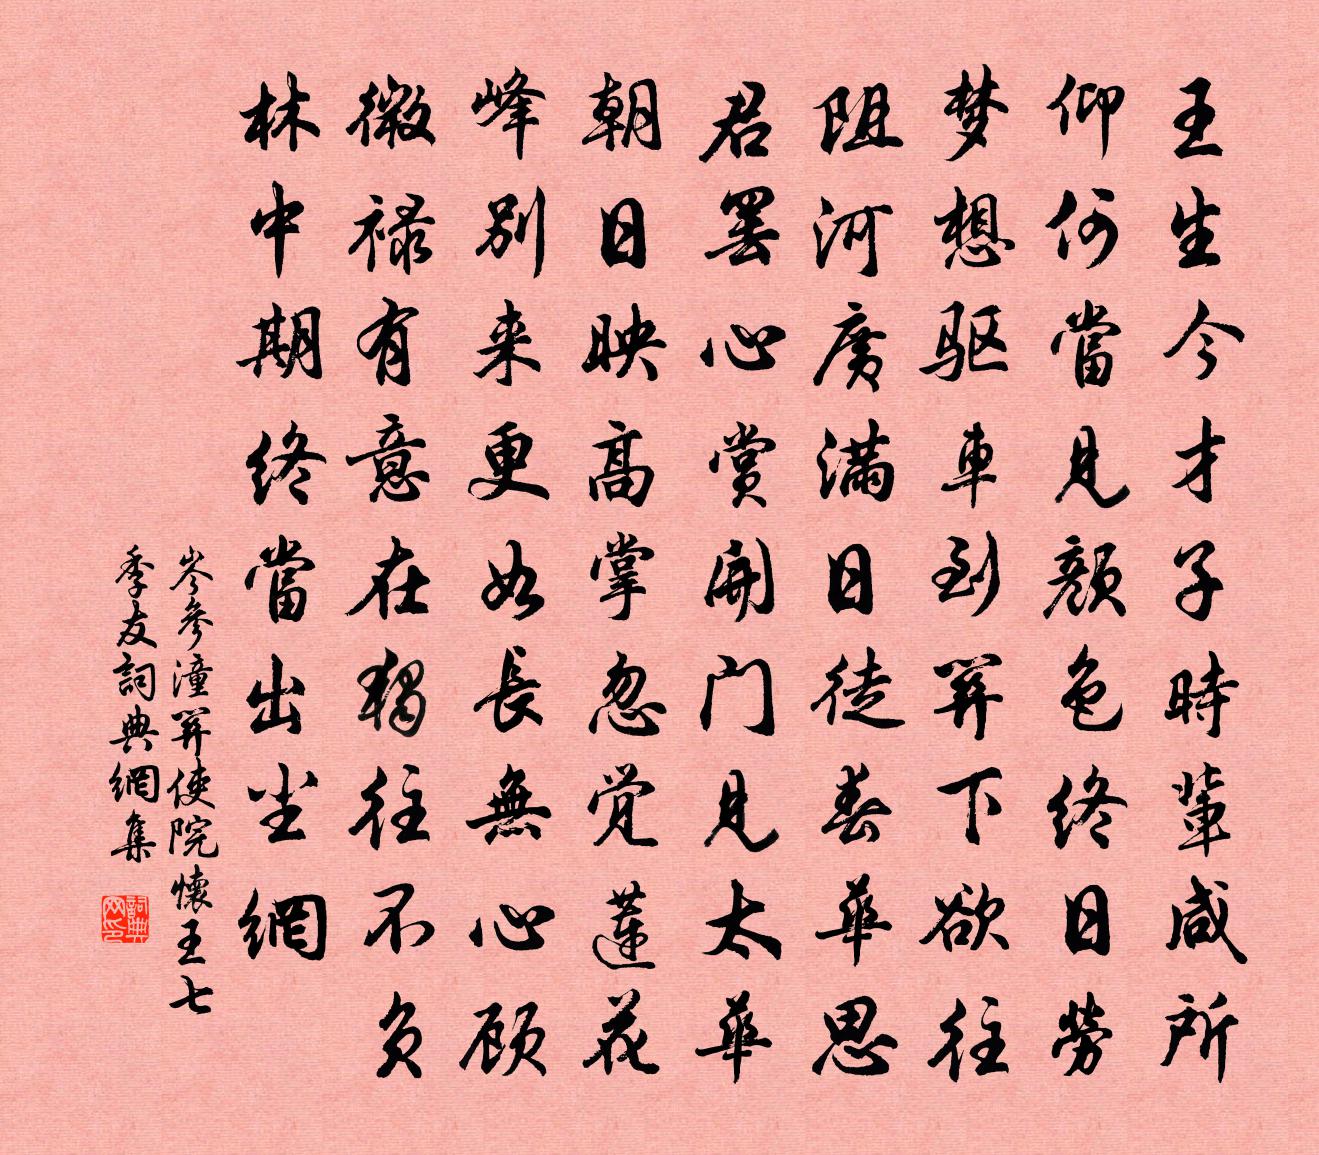 王生今才子時輩咸所
仰何當見顏色終日勞
梦想驱車到関下欲往
阻河廣滿日徒春華思
君罢心赏開门見太華
朝日映高掌忽觉蓮花
峰别来更如長無心顾
微禄有意在獨往不负
林中期终當出尘網
岑參潼関使院懷王七
季友詞典網集
詞典网印